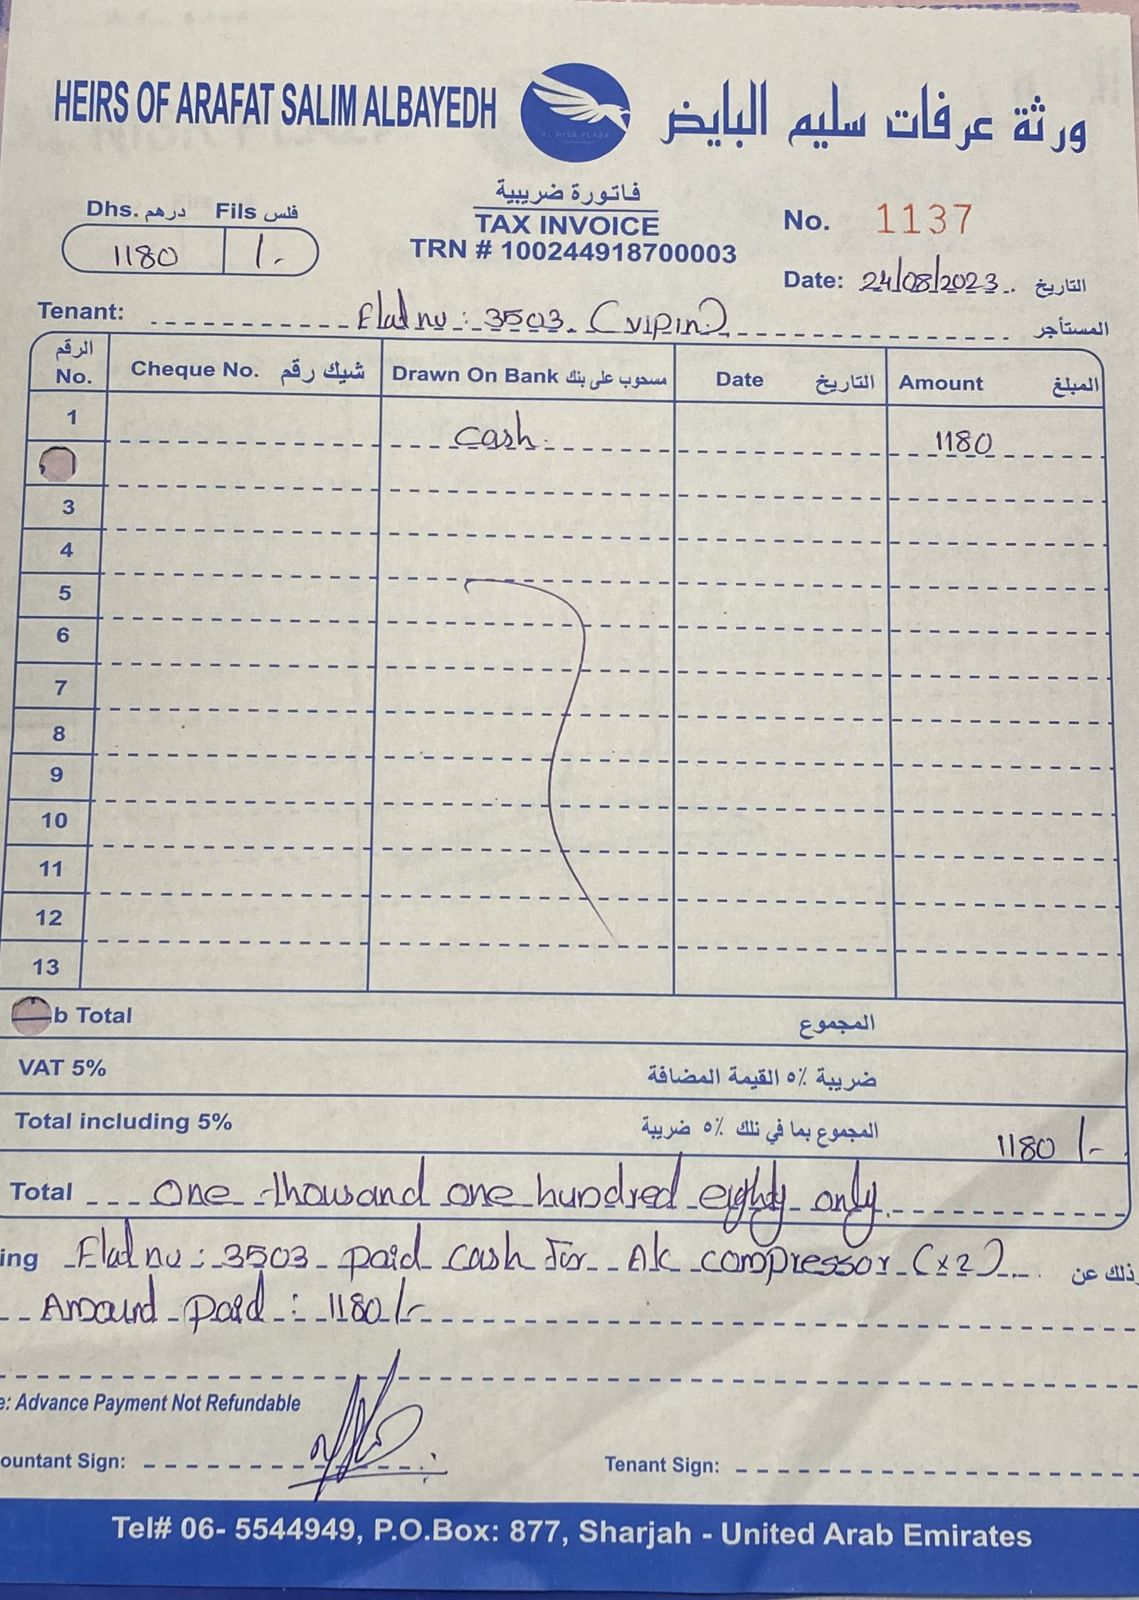 HEIRS OF ARAFAT SALIM ALBAYEDH
ورثة عرفات سليم البايض
AL NISR PLAZA
فاتورة ضريبية
TAX INVOICE
TRN # 100244918700003
Dhs. درهم Fils فلس
1180 /-
No. 1137
Date: 24/08/2023. التاريخ
Tenant: Flat no : 3503. (vipin.) المستأجر
الرقم No. Cheque No. شيك رقم Drawn On Bank مسحوب على بنك Date التاريخ Amount المبلغ
1 cash. 1180
3
4
5
6
7
8
9
10
11
12
13
b Total المجموع
VAT 5% ضريبة ٥٪ القيمة المضافة
Total including 5% المجموع بما في تلك ٥٪ ضريبة 1180 /-
Total one thousand one hundred eighty only.
ing Flat no : 3503 paid cash for Ak compressor (x2) وذلك عن
Amount paid : 1180/-
e: Advance Payment Not Refundable
ountant Sign: Tenant Sign:
Tel# 06- 5544949, P.O.Box: 877, Sharjah - United Arab Emirates